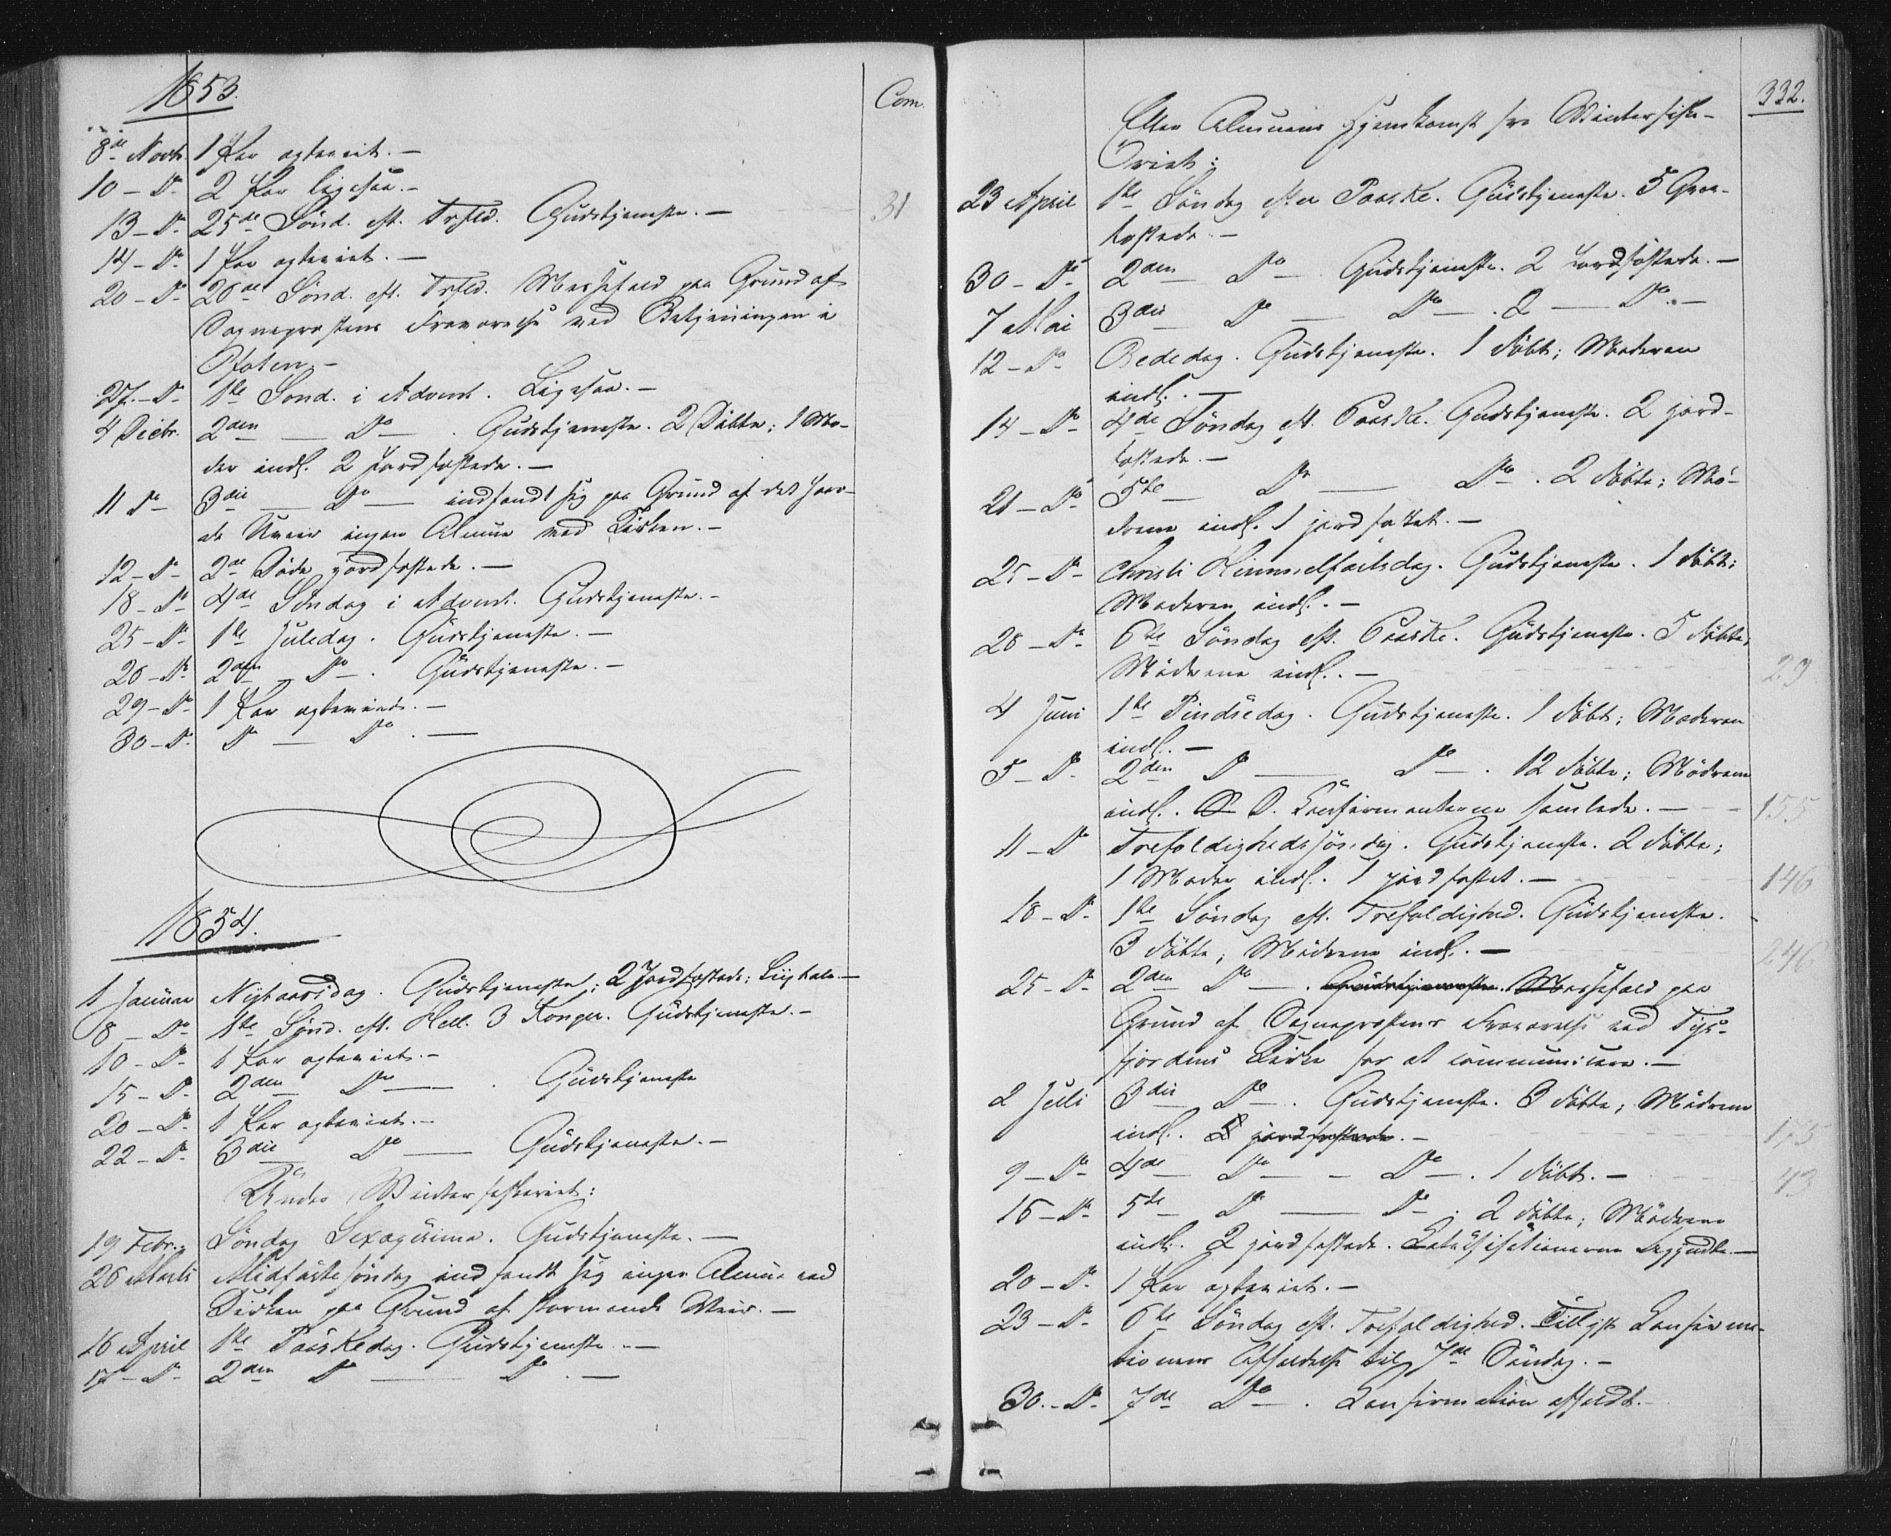 1853.
Com.
8de Novb. 1 Par ægteviet. —
10 – Do 2 Par ligesaa. —
13 – Do 25de Sønd. eft. Trfld. Gudstjeneste. — 31
14 – Do 1 Par ægteviet. —
20 – Do 26de Sønd. eft. Trfld. Messefald paa Grund af
Sognepræstens Fraværelse ved Betjeningen i
Ofoten. —
27 – Do 1ste Sønd. i Advent. Ligesaa. —
4 Decbr. 2den — Do — . Gudstjeneste. 2 Døbte; 1 Mo-
der indl. 2 Jordfæstede. —
11 Do 3die — Do — indfandt sig paa Grund af det haar-
de Uveir ingen Almue ved Kirken. —
12 – Do 2de Døde jordfæstede. —
18 – Do 4de Søndag i Advent. Gudstjeneste. —
25 – Do 1ste Juledag. Gudstjeneste. —
26 – Do 2den – Do – . Gudstjeneste. —
29 – Do 1 Par ægteviet. —
30 – Do Do — Do . —
1854.
1 Januar Nytaarsdag. Gudstjeneste; 2 Jordfæstede; Liigtale. —
8 – Do 1ste Sønd. eft. Hell. 3 Konger. Gudstjeneste. —
10 – Do 1 Par ægteviet. —
15 – Do 2den Do — . Gudstjeneste
20 – Do 1 Par ægteviet. —
22 – Do 3die — Do — Gudstjeneste. —
Under Vinterfiskeriet:
19 Febr. Søndag Sexagesima. Gudstjeneste. —
26 Marts Midfastesøndag indfandt sig ingen Almue ved
Kirken paa Grund af stormende Veir. —
16 April 1ste Paaskedag. Gudstjeneste. —
17 – Do 2den Do — Do . —
332.
Efter Almuens Hjemkomst fra Vinterfiske-
riet:
23 April 1ste Søndag efter Paaske. Gudstjeneste. 5 Jord-
fæstede. —
30 – Do 2den Do — Gudstjeneste. 2 Jordfæstede. —
7 Mai 3die — Do — Do — . 2 — Do . —
12 – Do Bededag. Gudstjeneste. 1 døbt; Moderen
indl. —
14 – Do 4de Søndag eft. Paaske. Gudstjeneste. 2 jord-
fæstede. —
21 – Do 5te — Do — Do — . 2 døbte; Mø-
drene indl. 1 jordfæstet. —
25 – Do Christi Himmelfartsdag. Gudstjeneste. 1 døbt;
Moderen indl. —
28 – Do 6te Søndag eft. Paaske. Gudstjeneste. 5 døbte;
Mødrene indl. — 29
4 Juni 1ste Pindsedag. Gudstjeneste. 1 døbt; Moderen
indl. —
5 – Do 2den Do — Do — . 12 døbte; Mødrene
indl. Confirmanterne samlede. — 155
11 – Do Trefoldighedssøndag. Gudstjeneste. 2 døbte;
1 Moder indl. 1 jordfæstet. — 146
18 – Do 1ste Søndag eft. Trefoldighed. Gudstjeneste.
3 døbte; Mødrene indl. — 246
25 – Do 2den Do — . Gudstjeneste. Messefald paa
Grund af Sognepræstens Fraværelse ved Tys-
fjordens Kirke for at communicere. —
2 Juli 3die — Do — . Gudstjeneste. 3 døbte; Mødrene
indl. jordfæstede. — 175
9 – Do 4de — Do — – Do — . 1 døbt. — 73
16 – Do 5te — Do — Do . 2 døbte; Mødrene
indl. 2 jordfæstede. begyndte —
20 – Do 1 Par ægteviet. —
23 – Do 6te Søndag eft. Trefoldighed. Confirma-
tionens til 7de Søndag. —
30. – Do 7de Do — . Confirmation afholdt. —